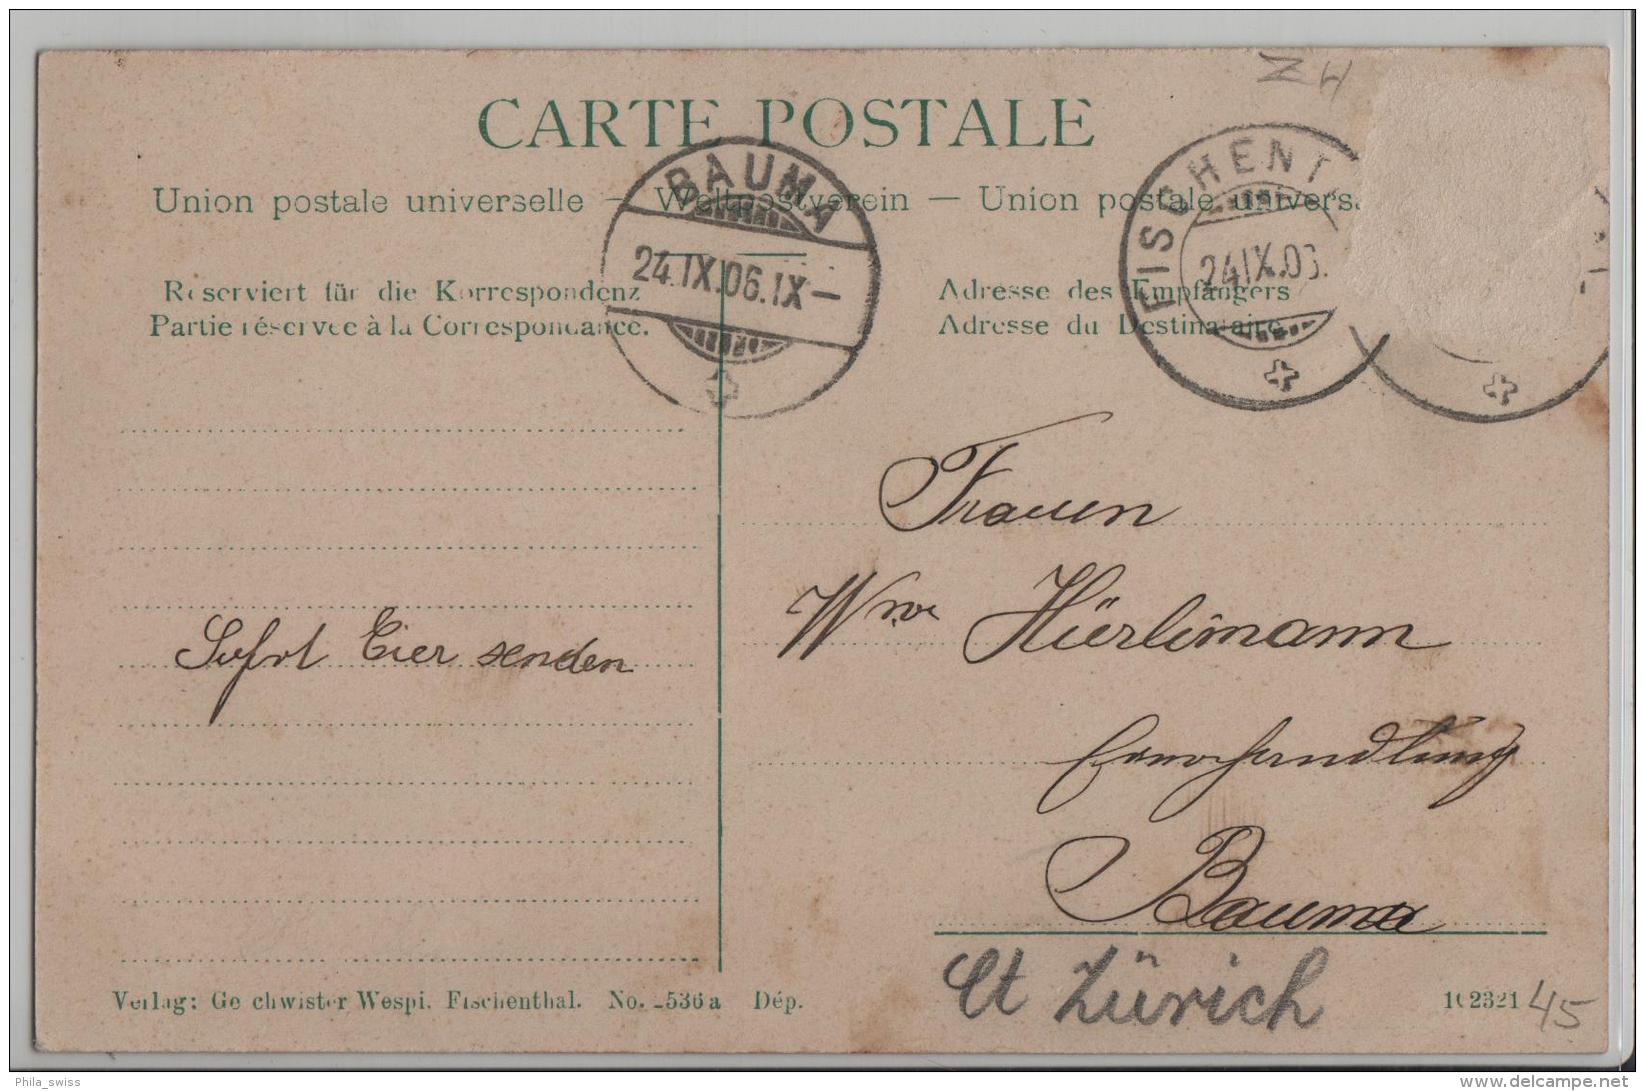 ZH
CARTE POSTALE
Union postale universelle — Weltpostverein — Union postale univers
BAUMA
24.IX.06.IX–
FISCHENT
24.IX.06.
Reserviert für die Korrespondenz
Partie réservée à la Correspondance.
Adresse des Empfängers
Adresse du Destinataire
Frauen
Wwe Hürlimann
Sofort Eier senden
Bauma
Ct Zürich
Verlag: Geschwister Wespi, Fischenthal. No. -536a Dép.
102321
45
Phila_swiss
www.delcampe.net